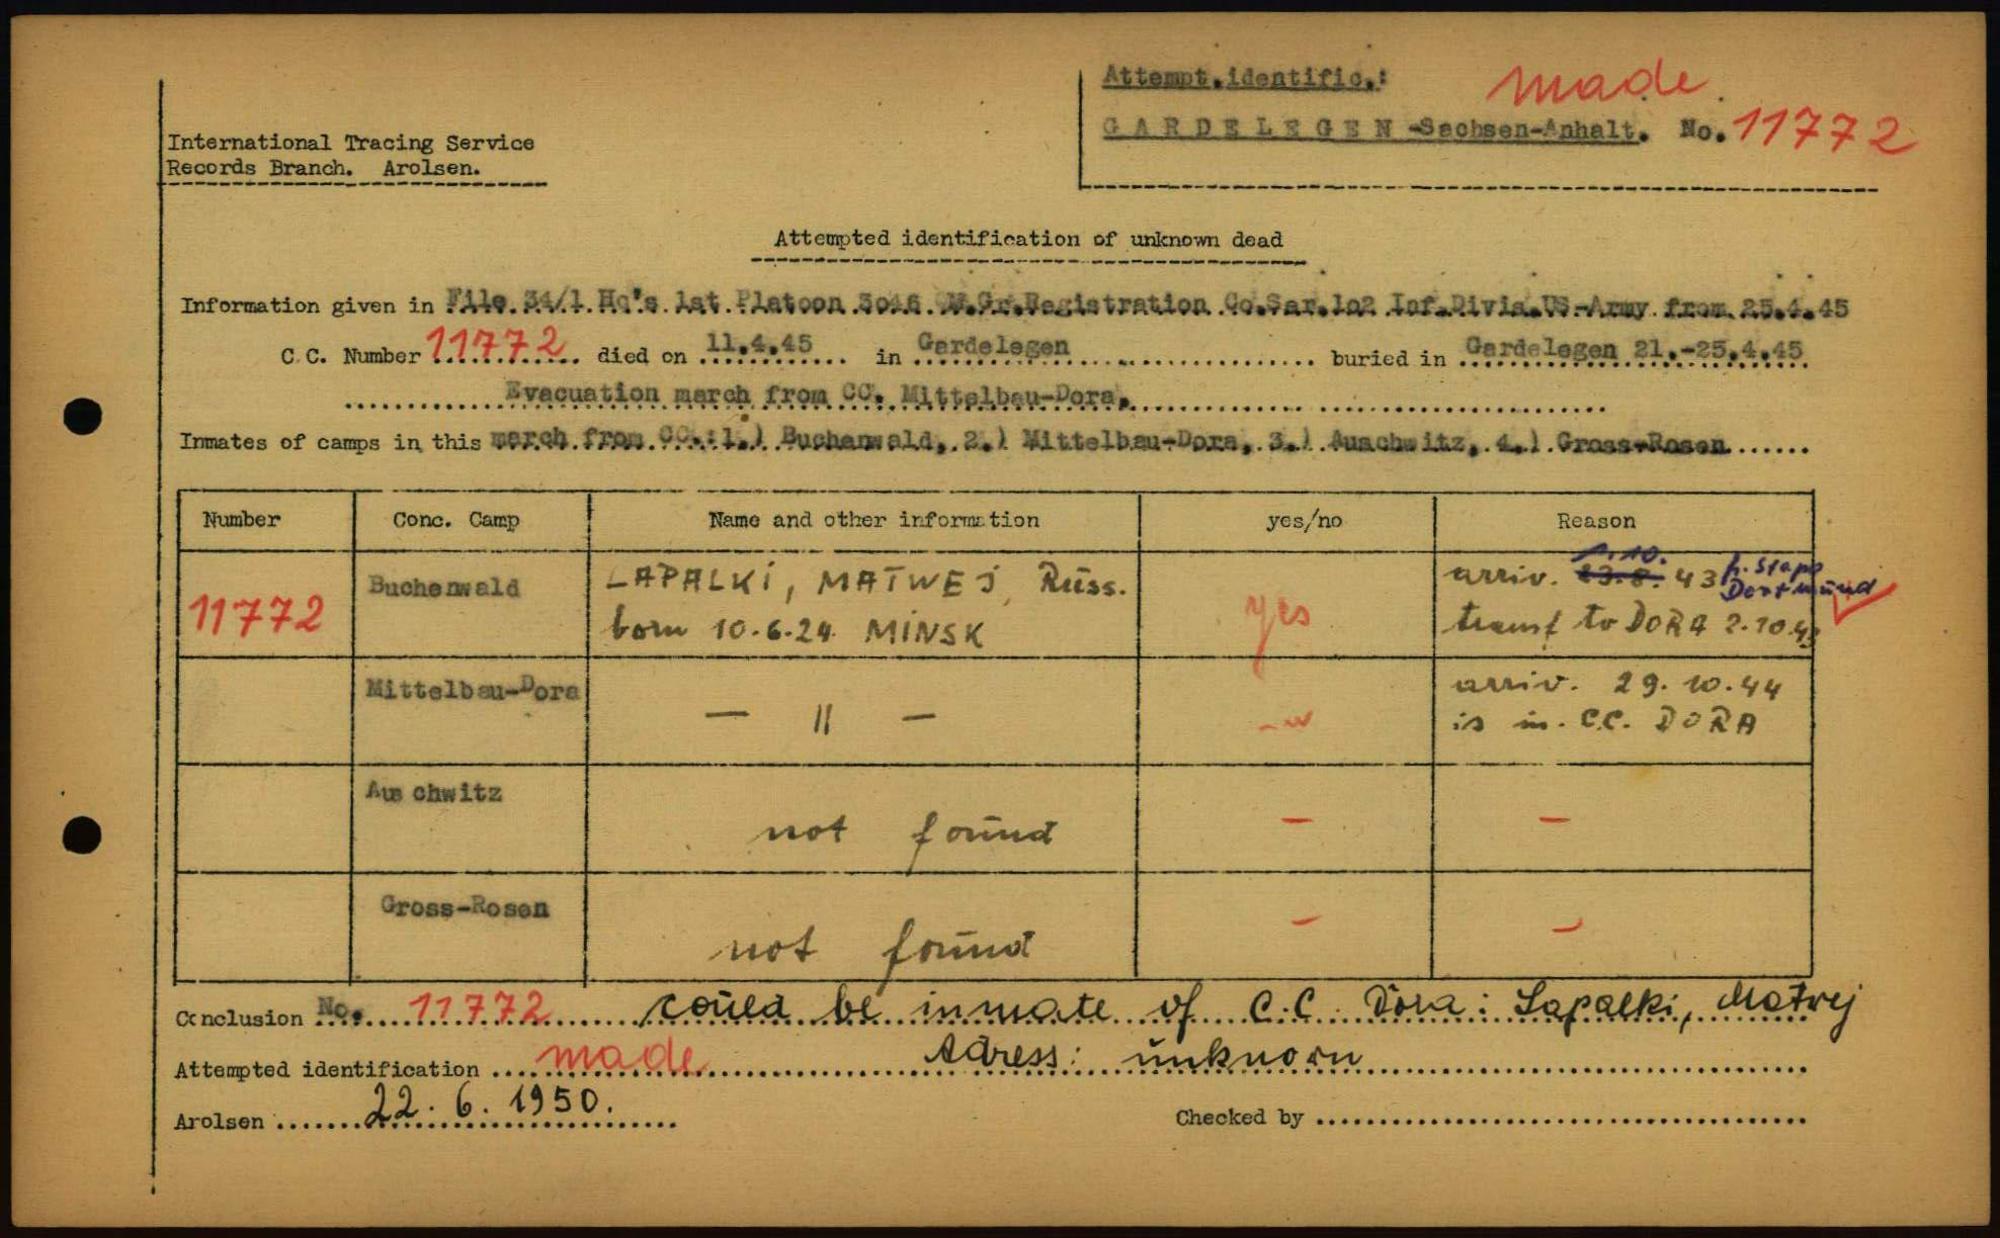 Attempt.identific.: made
GARDELEGEN -Sachsen-Anhalt. No. 11772
International Tracing Service
Records Branch. Arolsen.
Attempted identification of unknown dead
Information given in File 34/1 Hq's 1st Platoon 3o46 Gr.Registration Co. 1o2 Inf.Divis.US-Army from 25.4.45
C.C. Number 11772 died on 11.4.45 in Gardelegen buried in Gardelegen 21.-25.4.45
Evacuation march from CC. Mittelbau-Dora.
Inmates of camps in this march from CC.:1.) Buchenwald, 2.) Mittelbau-Dora, 3.) Auschwitz, 4.) Gross-Rosen
Number Conc. Camp Name and other information yes/no Reason
11772 Buchenwald LAPALKI, MATWEJ, Russ. yes arriv. 1.10. 23.8. 43 f. Stapo Dortmund
born 10.6.24. MINSK transf to DORA 2.10.43
Mittelbau-Dora — 〃 — arriv. 29.10.44
is in. C.C. DORA
Auschwitz not found — —
Gross-Rosen not found — —
Conclusion No. 11772 could be inmate of C.C. Dora: Lapalki, Matvej
Attempted identification made Adress: unknown
Arolsen 22.6.1950. Checked by